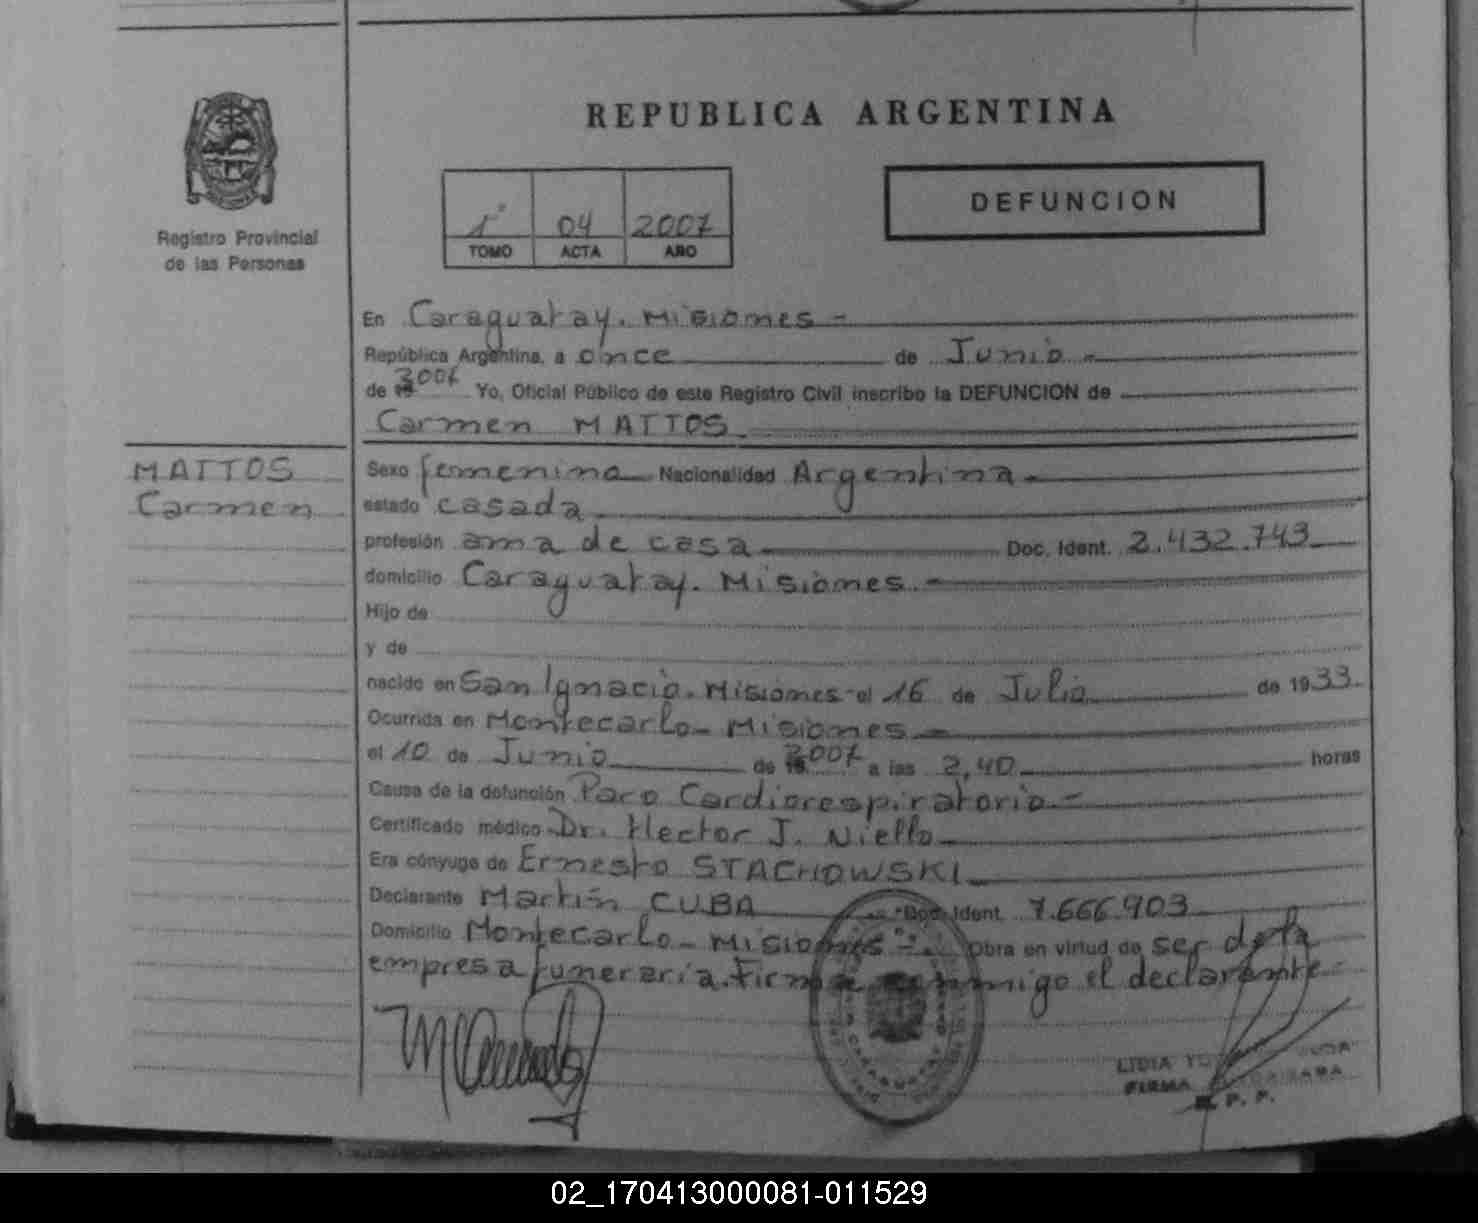 REPUBLICA ARGENTINA
Registro Provincial
de las Personas
1° 04 2007
TOMO ACTA AÑO
DEFUNCION
En Caraguatay. Misiones -
República Argentina, a once de Junio -
de 19 2007 Yo, Oficial Público de este Registro Civil inscribo la DEFUNCION de
Carmen MATTOS
MATTOS
Carmen
Sexo femenino Nacionalidad Argentina -
estado casada
profesión ama de casa Doc. Ident. 2.432.743
domicilio Caraguatay. Misiones. -
Hijo de
y de
nacido en San Ignacio. Misiones - el 16 de Julio de 1933.
Ocurrida en Montecarlo - Misiones -
el 10 de Junio de 19 2007 a las 2,40 horas
Causa de la defunción Paro Cardiorespiratorio. -
Certificado médico Dr. Hector J. Niello
Era cónyuge de Ernesto STACHOWSKI
Declarante Martín CUBA Doc. Ident. 7.666.903
Domicilio Montecarlo - Misiones - . Obra en virtud de ser de la
empresa funeraria. Firma conmigo el declarante -
LIDIA
FIRMA
P. P.
02_170413000081-011529